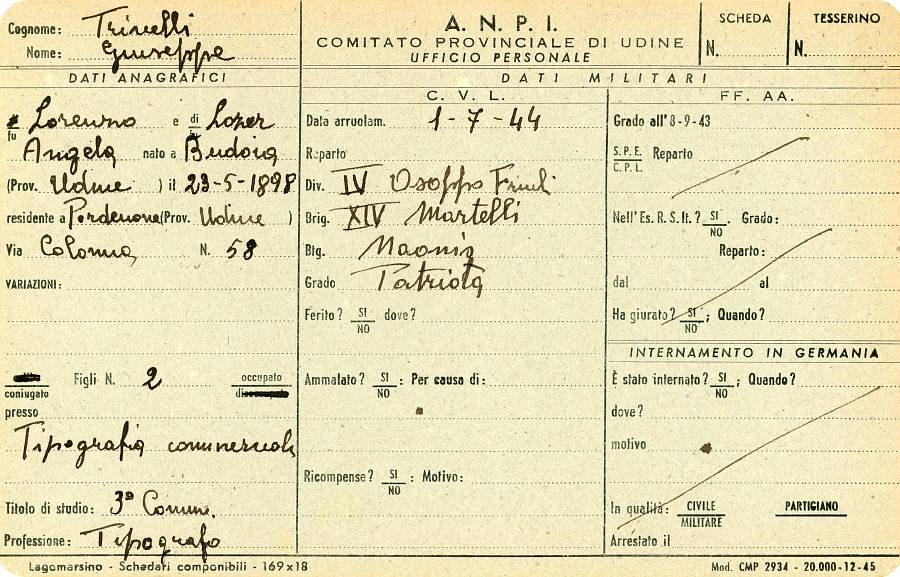 Cognome: Trivelli
Nome: Giuseppe
A. N. P. I.
COMITATO PROVINCIALE DI UDINE
UFFICIO PERSONALE
SCHEDA
N.
TESSERINO
N.
DATI ANAGRAFICI
fu Lorenzo e di Lozer
Angela nato a Budoia
(Prov. Udine ) il 23-5-1898
residente a Pordenone (Prov. Udine )
Via Colonna N. 58
VARIAZIONI:
coniugato
Figli N. 2
occupato
disoccupato
presso
Tipografia commerciale
Titolo di studio: 3ª Comune.
Professione: Tipografo
DATI MILITARI
C. V. L.
Data arruolam. 1-7-44
Reparto
Div. IV Osoppo Friuli
Brig. XIV Martelli
Btg. Naonis
Grado Patriota
Ferito? SI NO dove?
Ammalato? SI NO : Per causa di:
Ricompense? SI NO : Motivo:
FF. AA.
Grado all'8-9-43
S.P.E. C.P.L. Reparto
Nell'Es. R. S. It.? SI NO . Grado:
Reparto:
dal al
Ha giurato? SI NO ; Quando?
INTERNAMENTO IN GERMANIA
È stato internato? SI NO ; Quando?
dove?
motivo
In qualità: CIVILE MILITARE PARTIGIANO
Arrestato il
Lagomarsino - Schedari componibili - 169x18
Mod. CMP 2934 - 20.000-12-45